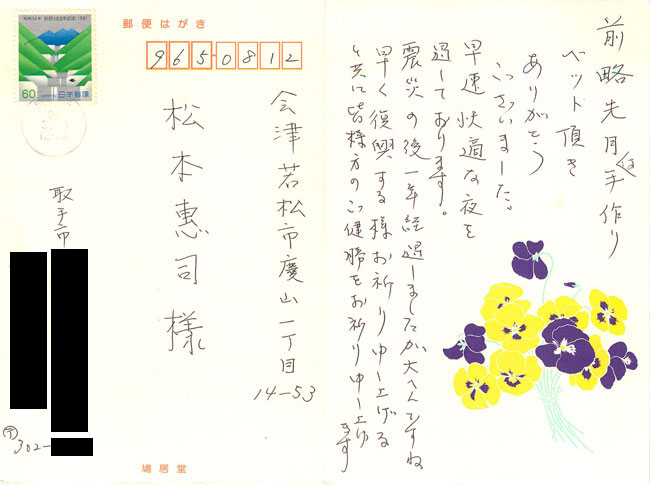 郵便はがき
9650812
会津若松市慶山一丁目
14-53
松本惠司様
取手市
〒302-
60
日本郵便
鳩居堂
前略先月は手作り
ベット頂き
ありがとう
ございました。
早速快適な夜を
過しております。
震災の後一年経過しましたが大へんですね
早く復興する様お祈り申し上げる
と共に皆様方のご健勝をお祈り申し上げ
ます